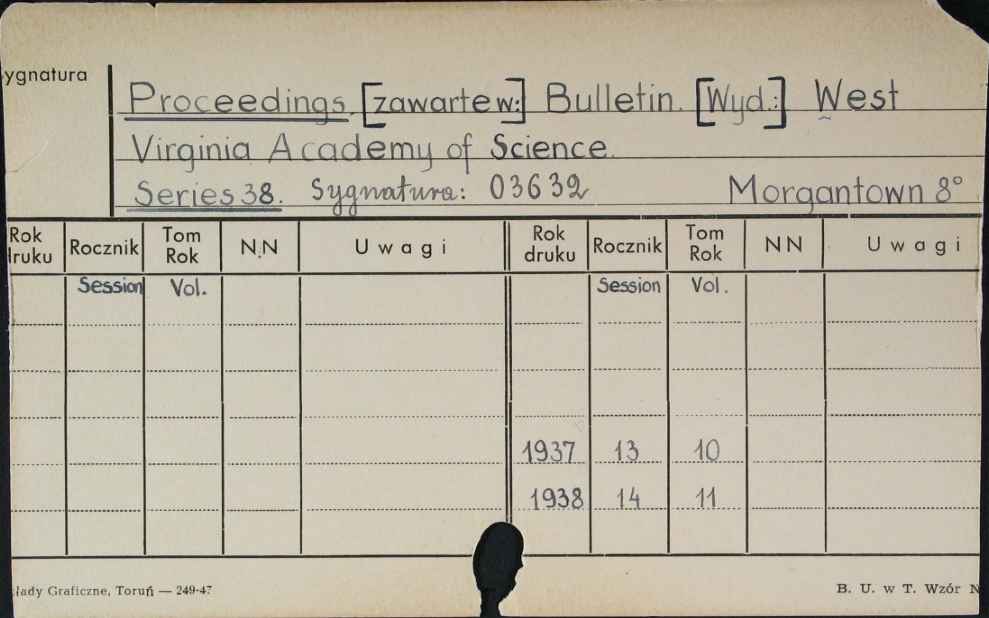 ygnatura
Proceedings. [zawarte w:] Bulletin. [Wyd.:] West
Virginia Academy of Science.
Series 38. Sygnatura: 03632 Morgantown 8°
Rok druku Rocznik Tom Rok N.N Uwagi Rok druku Rocznik Tom Rok NN Uwagi
Session Vol. Session Vol.
1937 13 10
1938 14 11
łady Graficzne, Toruń — 249-47 B. U. w T. Wzór N